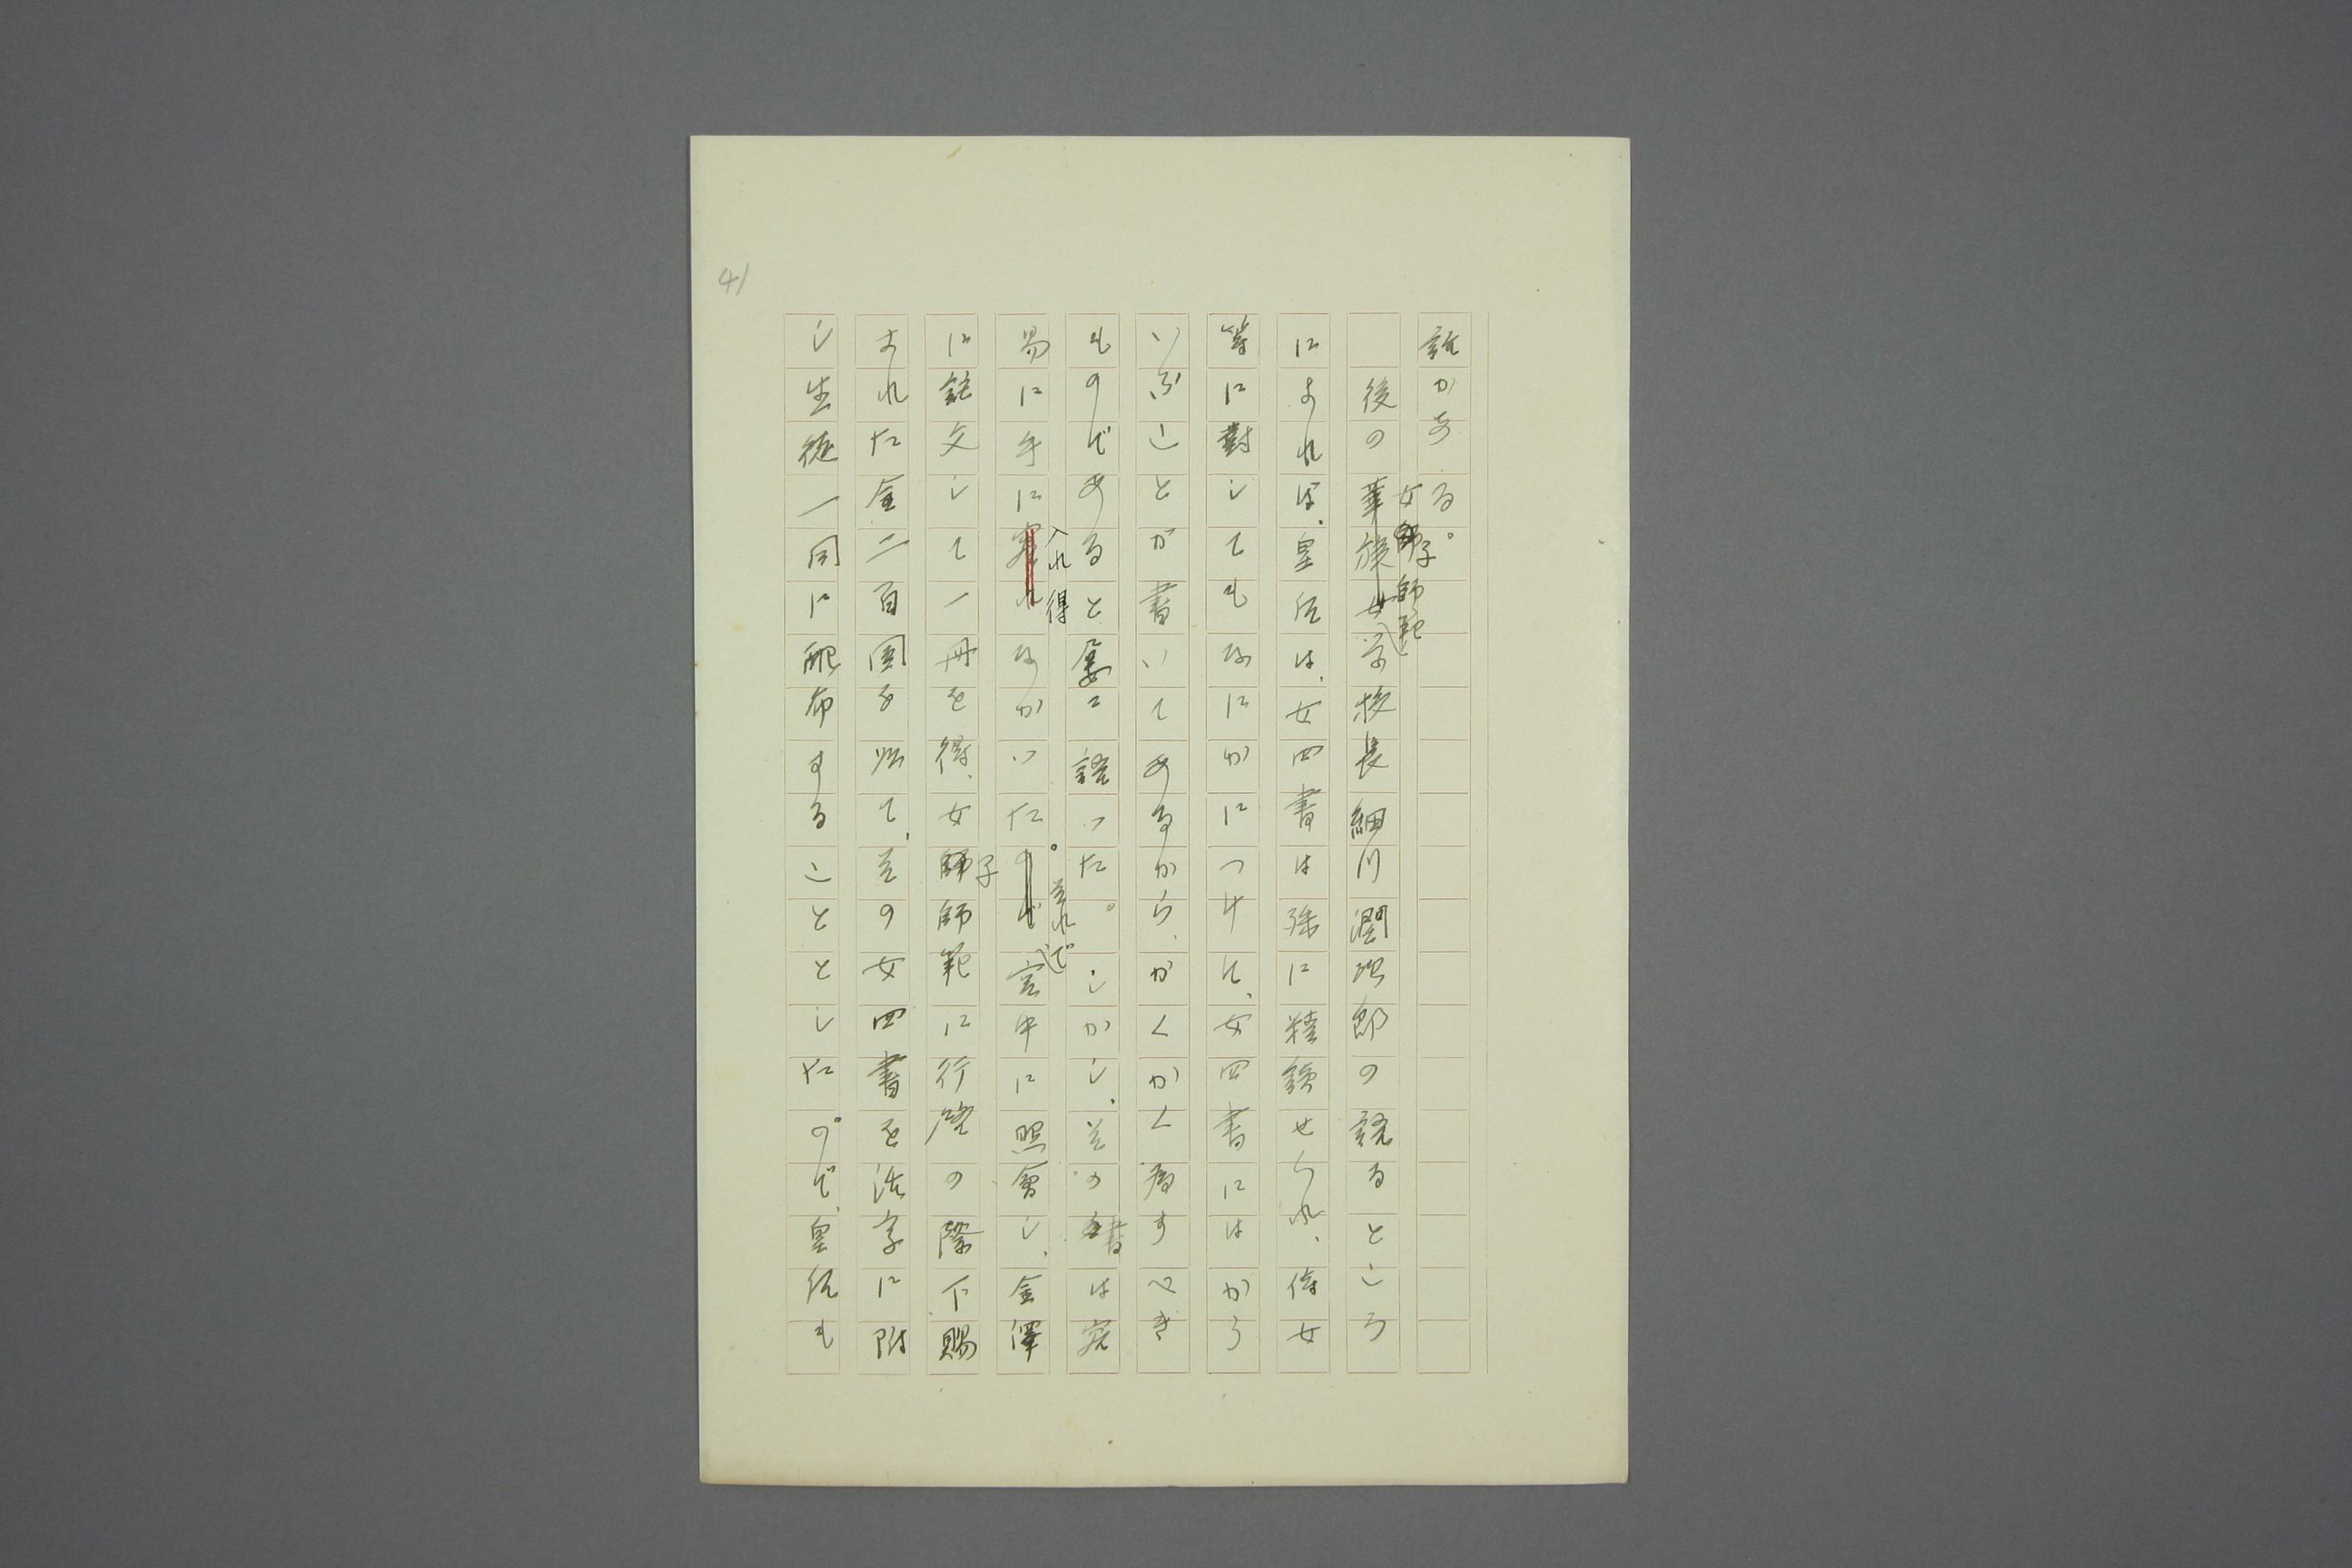 41
話がある。
後の女子師範学校長細川潤次郎の話るところ
によれば、皇后は、女四書は殊に精読せられ、侍女
等に對してもなにかにつけて、女四書にはかう
いふことが書いてあるから、かくかく為すべき
ものであると屡々語つた。しかし、其の書は容
易に手に入れ得なかつた。其れで宮中に照會し、金澤
に註文して一冊を得、女子師範に行啓の際下賜
された金二百圓を以て、其の女四書を活字に附
し生徒一同に配布することとした。ので、皇后も